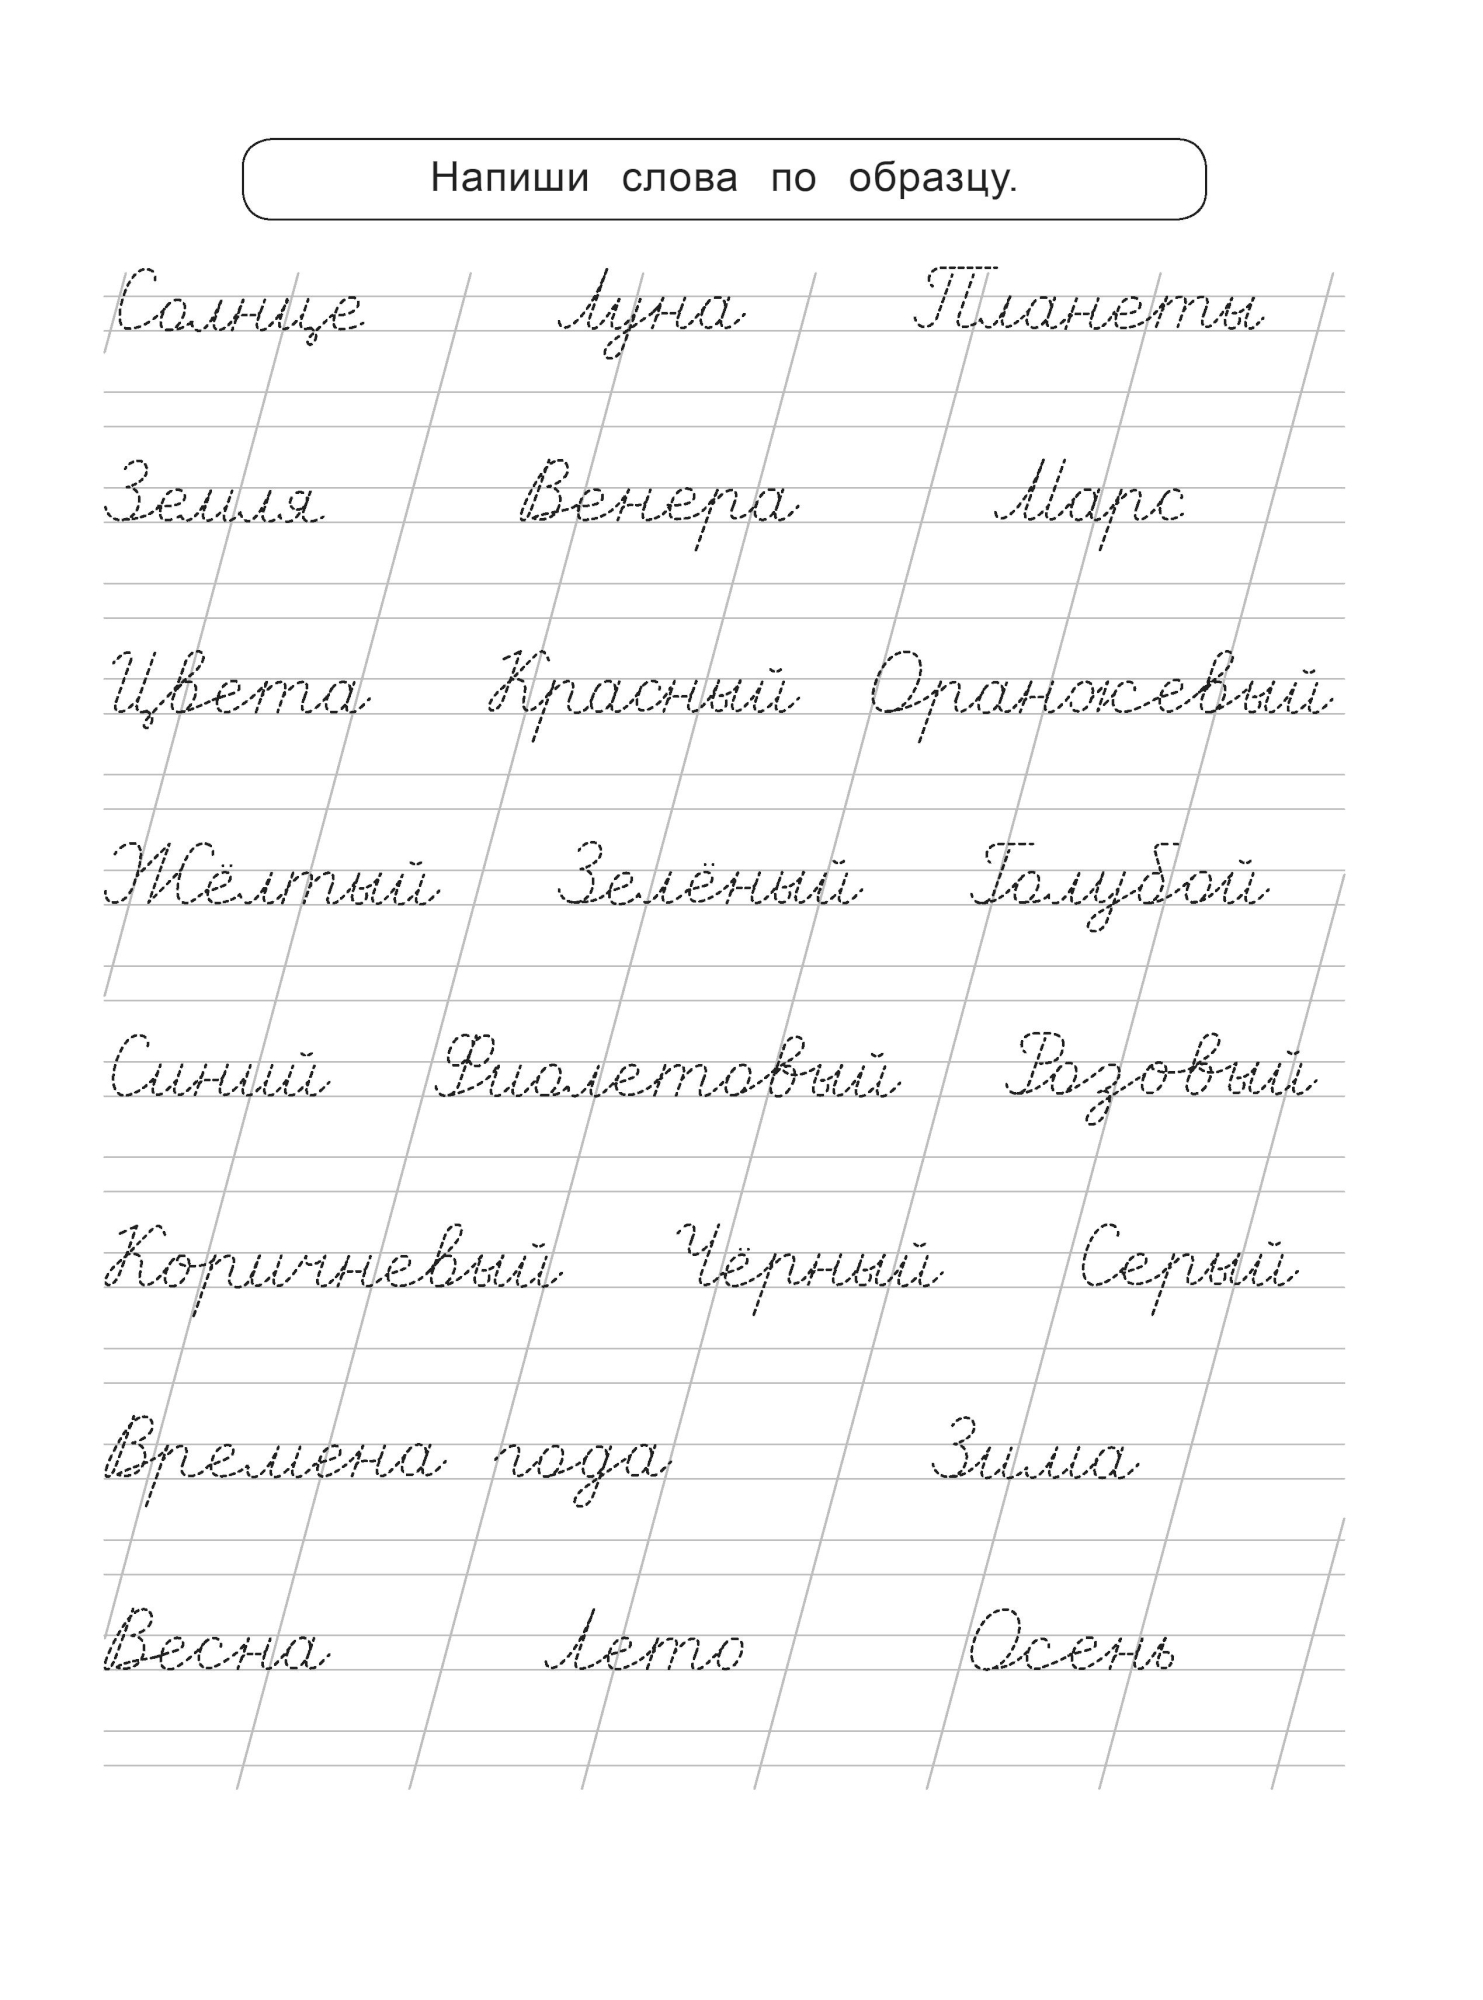 Напиши слова по образцу.
Солнце Луна Планеты
Земля Венера Марс
Цвета Красный Оранжевый
Жёлтый Зелёный Голубой
Синий Фиолетовый Розовый
Коричневый Чёрный Серый
Времена года Зима
Весна Лето Осень